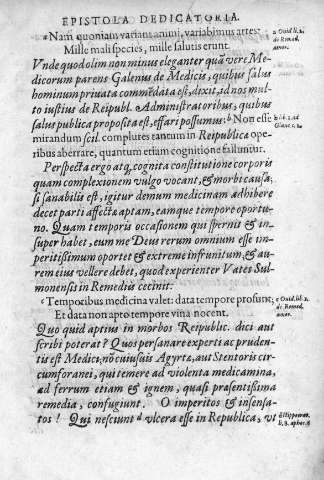 EPISTOLA DEDICATORIA.
a Nam quoniam variant animi, variabimus artes:
Mille mali species, mille salutis erunt.
a Ouid.li.2. de Remed. amor.
Vnde quodolim non minus eleganter quã vere Me-
dicorum parens Galenus de Medicis, quibus salus
hominum priuata commẽdata est, dixit, id nos mul
to iustius de Reipubl. Administratoribus, quibus
salus publica proposita est, effari possumus: b Non esse
b lib. 1. ad Glauc. c. 1.
mirandum scil. complures tantum in Reipublicæ ope
ribus aberrare, quantum etiam cognitione falluntur.
Perspecta ergo atq; cognita constitutione corporis
quam complexionem vulgo vocant, & morbi causa,
si sanabilis est, igitur demum medicinam adhibere
decet parti affectæ aptam, eamque tempore oportu-
no. Quam temporis occasionem qui spernit & in-
super habet, eum me Deus rerum omnium esse im-
peritissimum oportet & extreme infrunitum, & au-
rem eius vellere debet, quod experienter Vates Sul-
monensis in Remediis cecinit:
c Temporibus medicina valet: data tempore prosunt;
Et data non apto tempore vina nocent.
c Ouid.lib.1. de Remed. amor.
Quo quid aptius in morbos Reipublic. dici aut
scribi poterat? Quos persanare experti ac pruden-
tis est Medici; nõ cuiusuis Agyrtæ, aut Stentoris cir-
cumforanei, qui temere ad violenta medicamina,
ad ferrum etiam & ignem, quasi præsentissima
remedia, confugiunt. O imperitos & insensa-
tos! Qui nesciunt d vlcera esse in Republica, vt
d Hippocrat. li. 8. aphor. 6